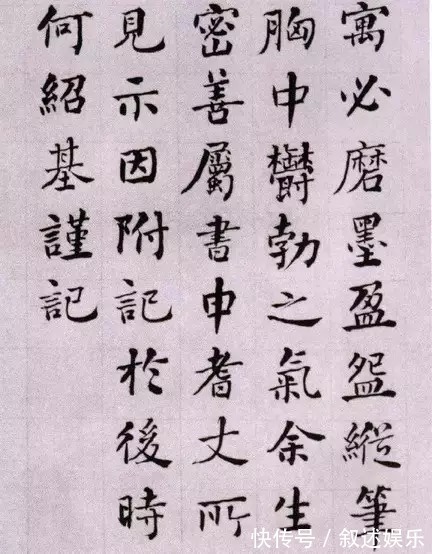 寓必磨墨盈盌縱筆
胸中欝勃之氣余生
密善屬書申耆丈所
見示因附記於後時
何紹基謹記
快传号 / 叙述娱乐